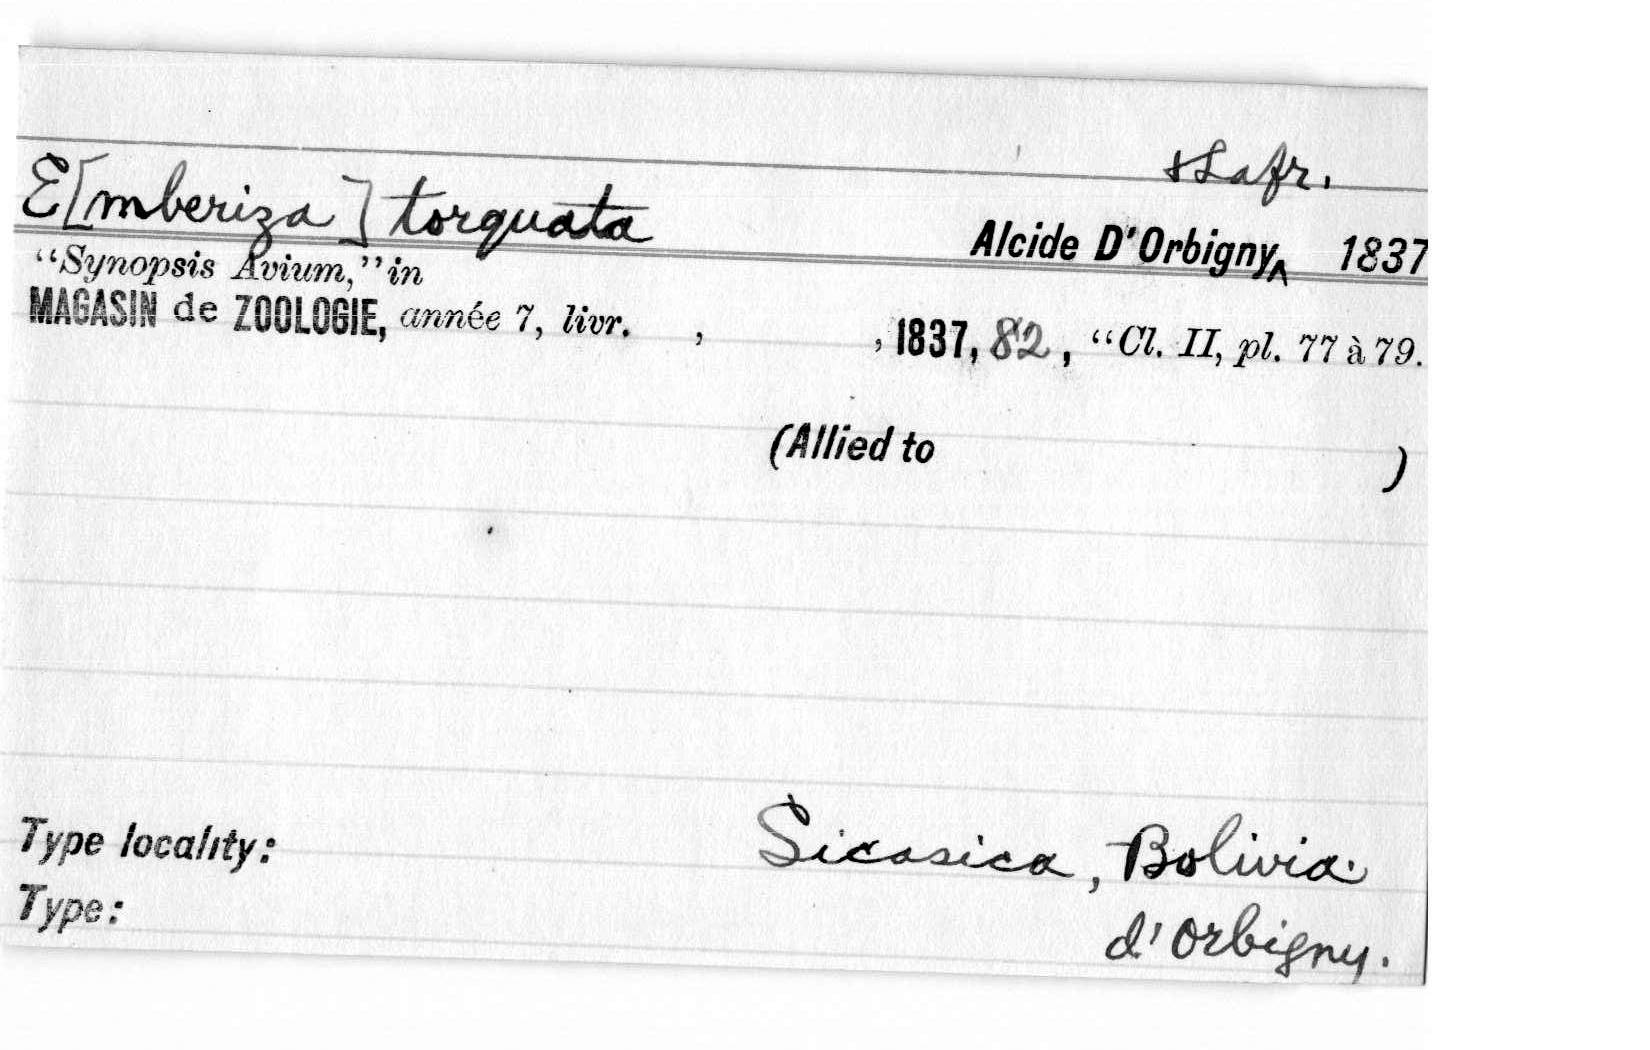 & Lafr.
E[mberiza] torquata
Alcide D'Orbigny^ 1837
“Synopsis Avium,” in
MAGASIN de ZOOLOGIE, année 7, livr. , , 1837, 82, “Cl. II, pl. 77 à 79.
(Allied to )
Type locality: Sicasica, Bolivia.
Type: d'Orbigny.